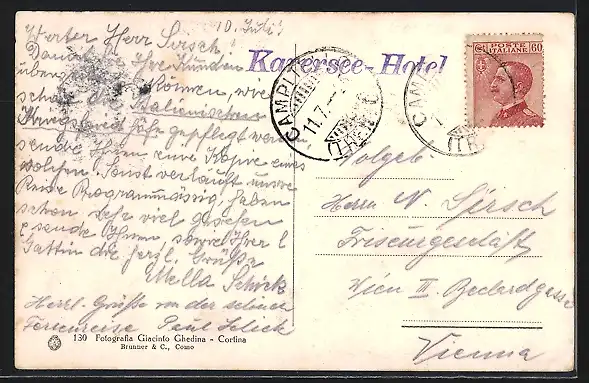 10. Juli
Werter Herr Sirsch!
Damit Sie Ihre Kunden
können, wie
schön die Italienischen
gepflegt werden
sende Ihnen eine Kopie eines
solchen. Sonst verläuft unsre
Reise Programmässig, haben
schon sehr viel gesehen
sende Ihnen, sowie Ihrer l.
Gattin die herzl. Grüße
Mella
Herzl. Grüße von der schönen
Ferienreise Paul
130 Fotografia Giacinto Ghedina - Cortina
Brunner & C., Como
Karersee-Hotel
CAMPITELLO
11.7.
(TRENTO)
POSTE ITALIANE 60
Wolgeb.
Herrn N. Sirsch
Friseurgeschäft
Wien III.
Vienna